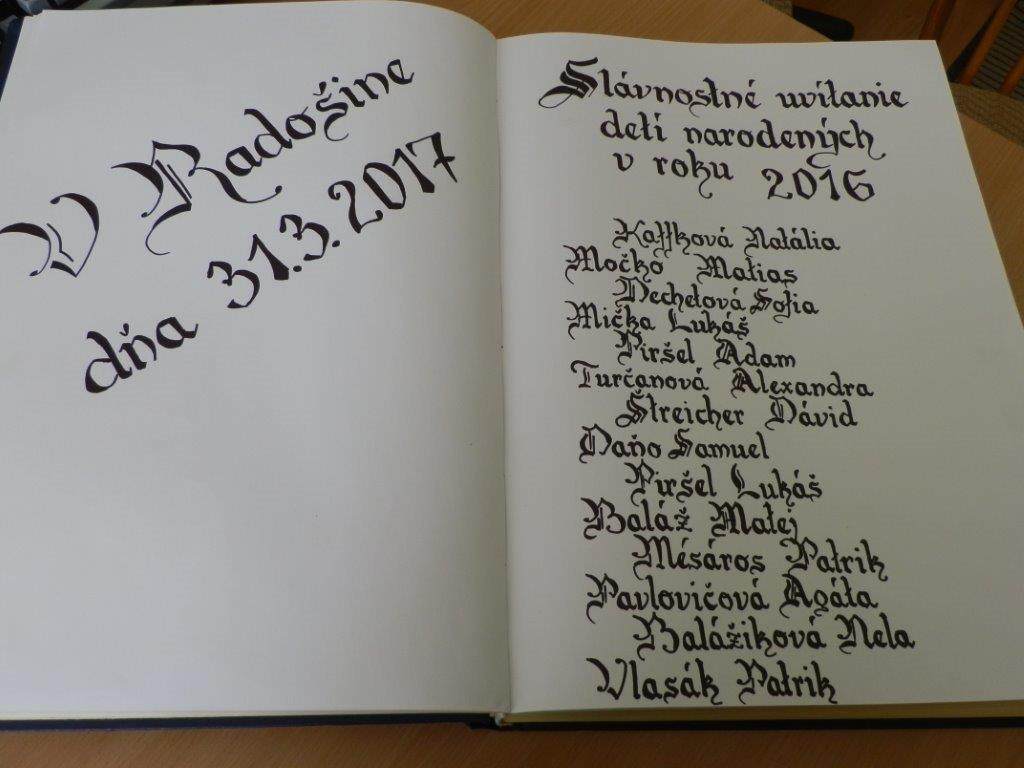 V Radošine
dňa 31.3.2017
Slávnostné uvítanie
detí narodených
v roku 2016
Kaffková Natália
Močko Matias
Dechetová Sofia
Mička Lukáš
Piršel Adam
Turčanová Alexandra
Štreicher Dávid
Daňo Samuel
Piršel Lukáš
Baláž Matej
Mésáros Patrik
Pavlovičová Agáta
Balážiková Nela
Vlasák Patrik